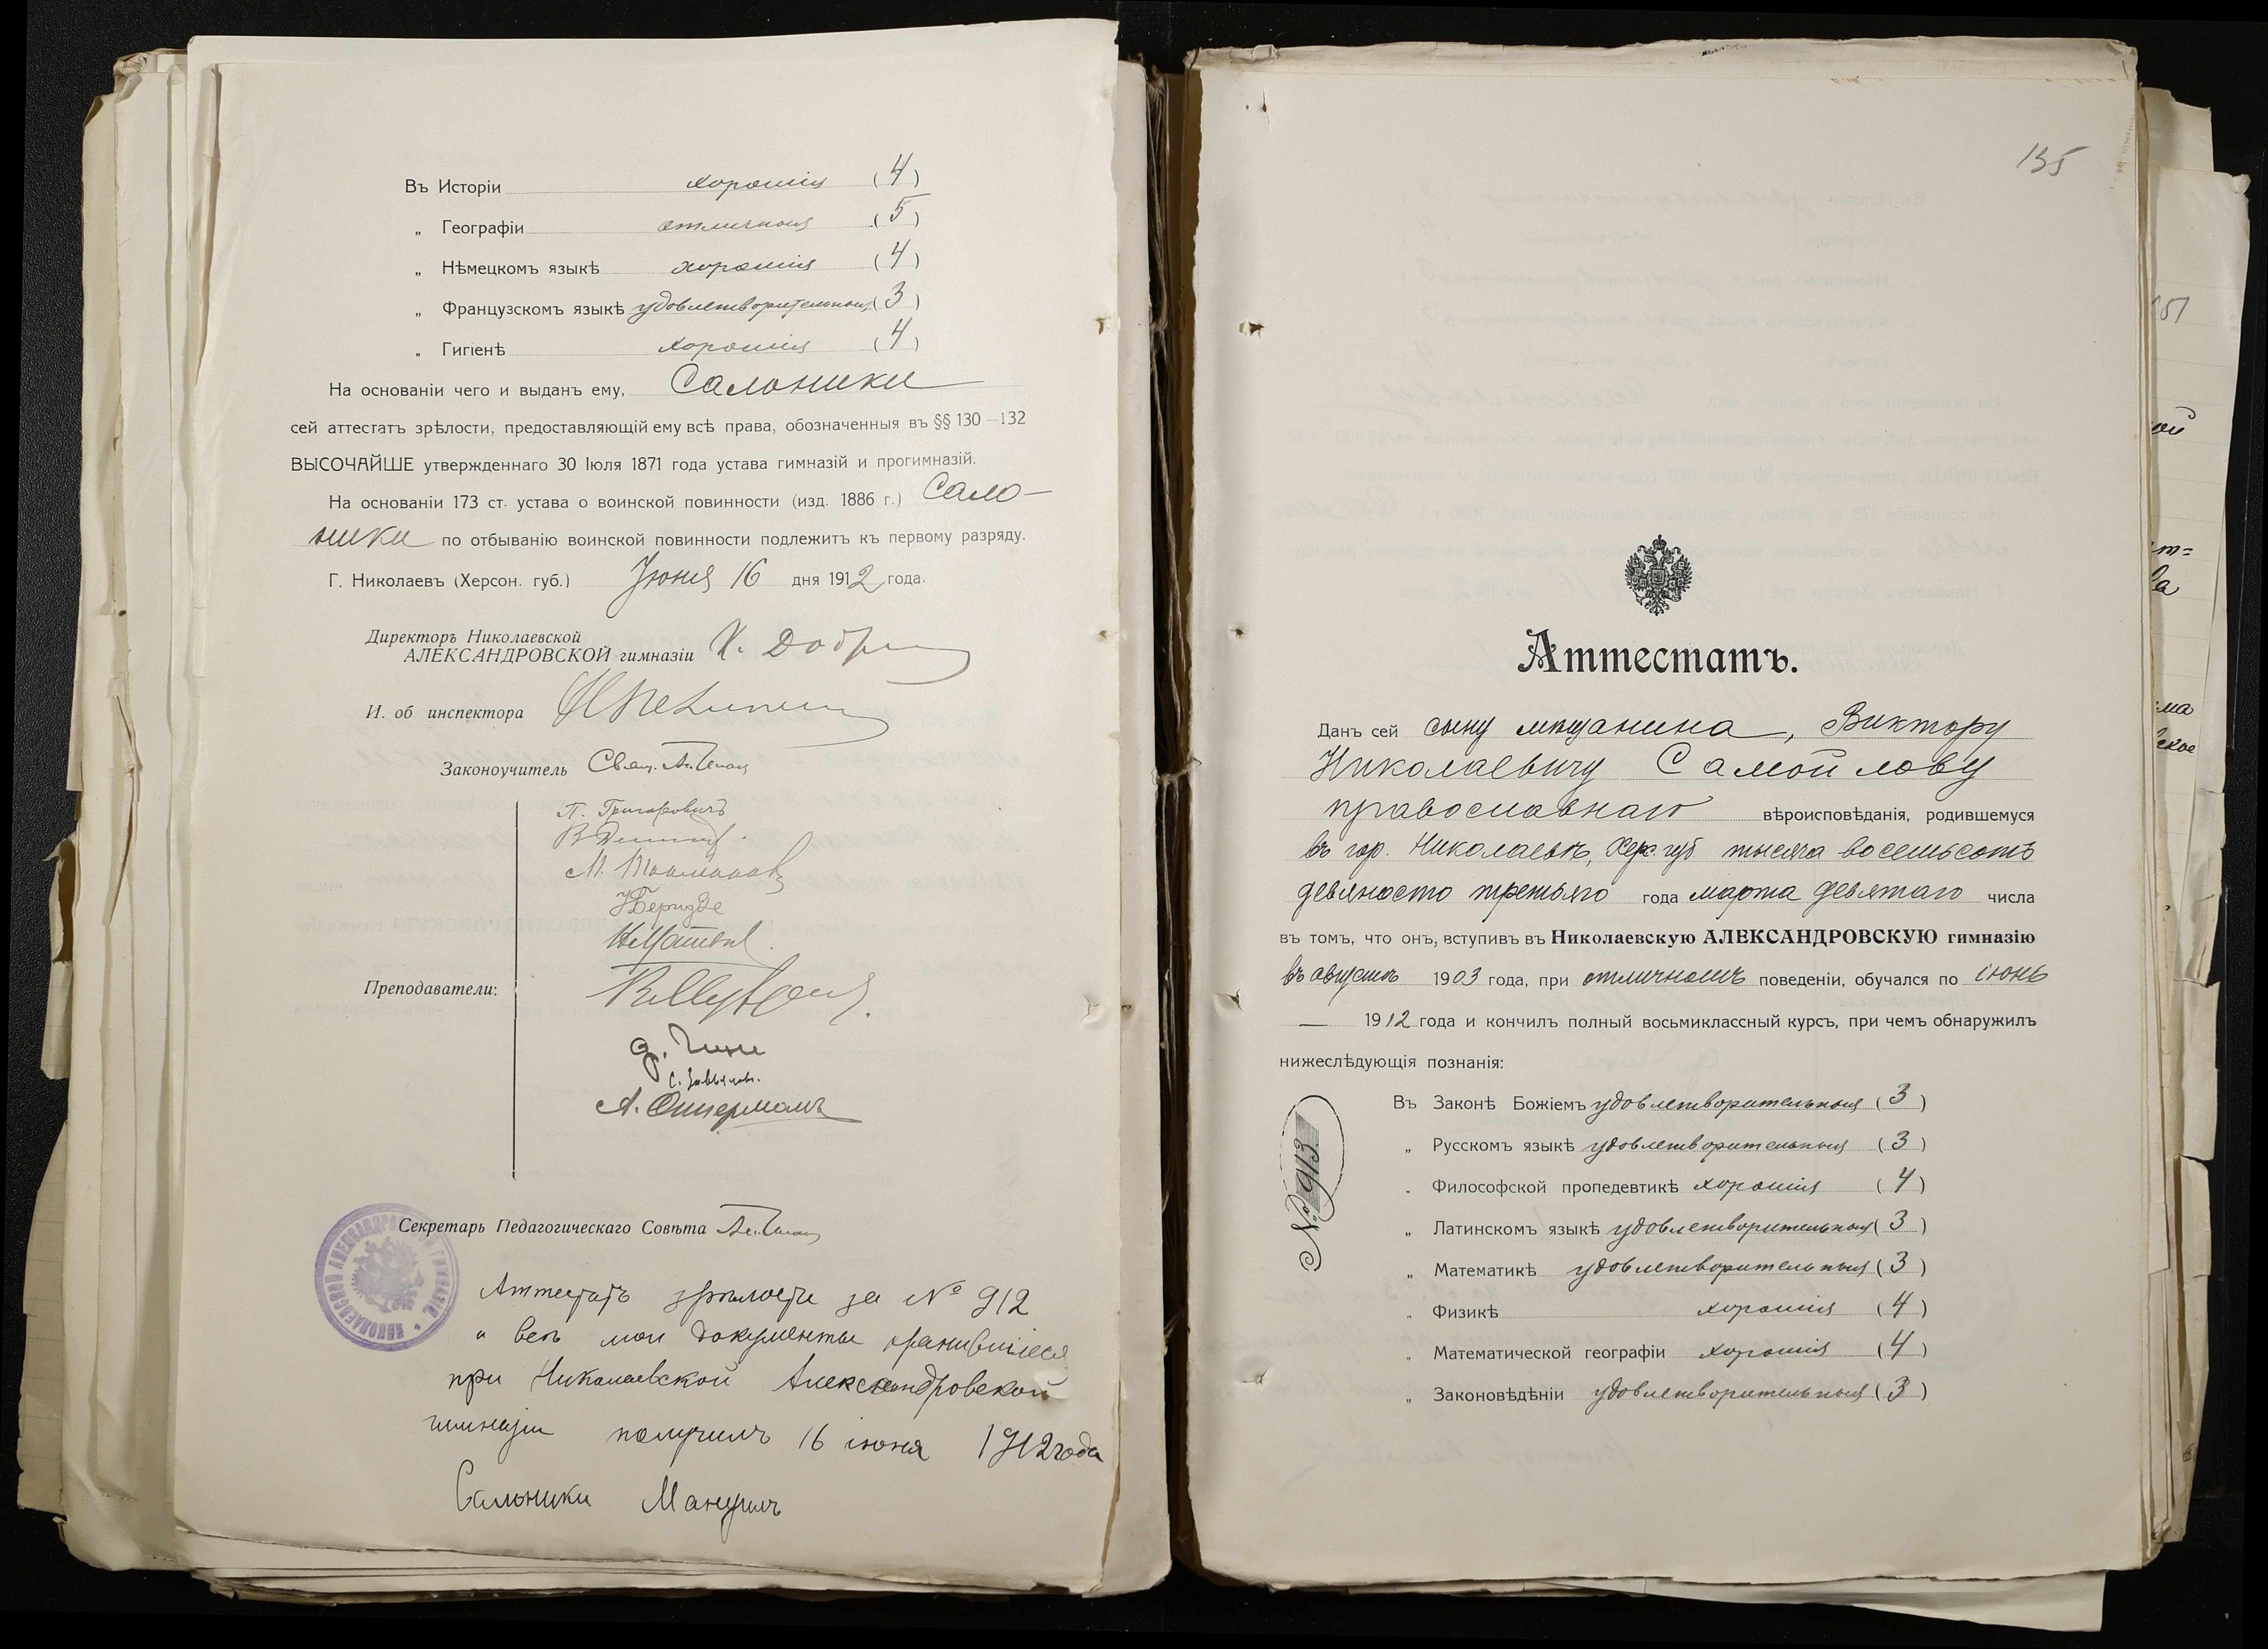 Въ Исторіи хорошія (4)
„ Географіи отличныя (5)
„ Нѣмецкомъ языкѣ хорошія (4)
„ Французскомъ языкѣ удовлетворительныя (3)
„ Гигіенѣ хорошія (4)
На основаніи чего и выданъ ему, Салоники
сей аттестатъ зрѣлости, предоставляющій ему всѣ права, обозначенныя въ §§ 130–132
ВЫСОЧАЙШЕ утвержденнаго 30 Іюля 1871 года устава гимназій и прогимназій.
На основаніи 173 ст. устава о воинской повинности (изд. 1886 г.) Сало-
ники по отбыванію воинской повинности подлежитъ къ первому разряду.
Г. Николаевъ (Херсон. губ.) Іюня 16 дня 1912 года.
Директоръ Николаевской
АЛЕКСАНДРОВСКОЙ гимназіи
И. об инспектора
Законоучитель Свящ.
П. Григоровичъ
Преподаватели:
Секретарь Педагогическаго Совѣта
НИКОЛАЕВСКОЙ АЛЕКСАНДРОВСКОЙ ГИМНАЗІЕ
Аттестатъ зрѣлости за № 912
и всѣ мои документы хранившіеся
при Николаевской Александровской
гимназіи получилъ 16 іюня 1912 года
Сальники Мануилъ
135
Аттестатъ.
Данъ сей сыну мѣщанина, Виктору
Николаевичу Самойлову
православнаго вѣроисповѣданія, родившемуся
въ гор. Николаевѣ, Херс. губ. тысяча восемьсотъ
девяносто третьяго года марта девятаго числа
въ томъ, что онъ, вступивъ въ Николаевскую АЛЕКСАНДРОВСКУЮ гимназію
въ августѣ 1903 года, при отличномъ поведеніи, обучался по іюнь
— 1912 года и кончилъ полный восьмиклассный курсъ, при чемъ обнаружилъ
нижеслѣдующія познанія:
Въ Законѣ Божіемъ удовлетворительныя (3)
„ Русскомъ языкѣ удовлетворительныя (3)
„ Философской пропедевтикѣ хорошія (4)
„ Латинскомъ языкѣ удовлетворительныя (3)
„ Математикѣ удовлетворительныя (3)
„ Физикѣ хорошія (4)
„ Математической географіи хорошія (4)
„ Законовѣдѣніи удовлетворительныя (3)
№ 913